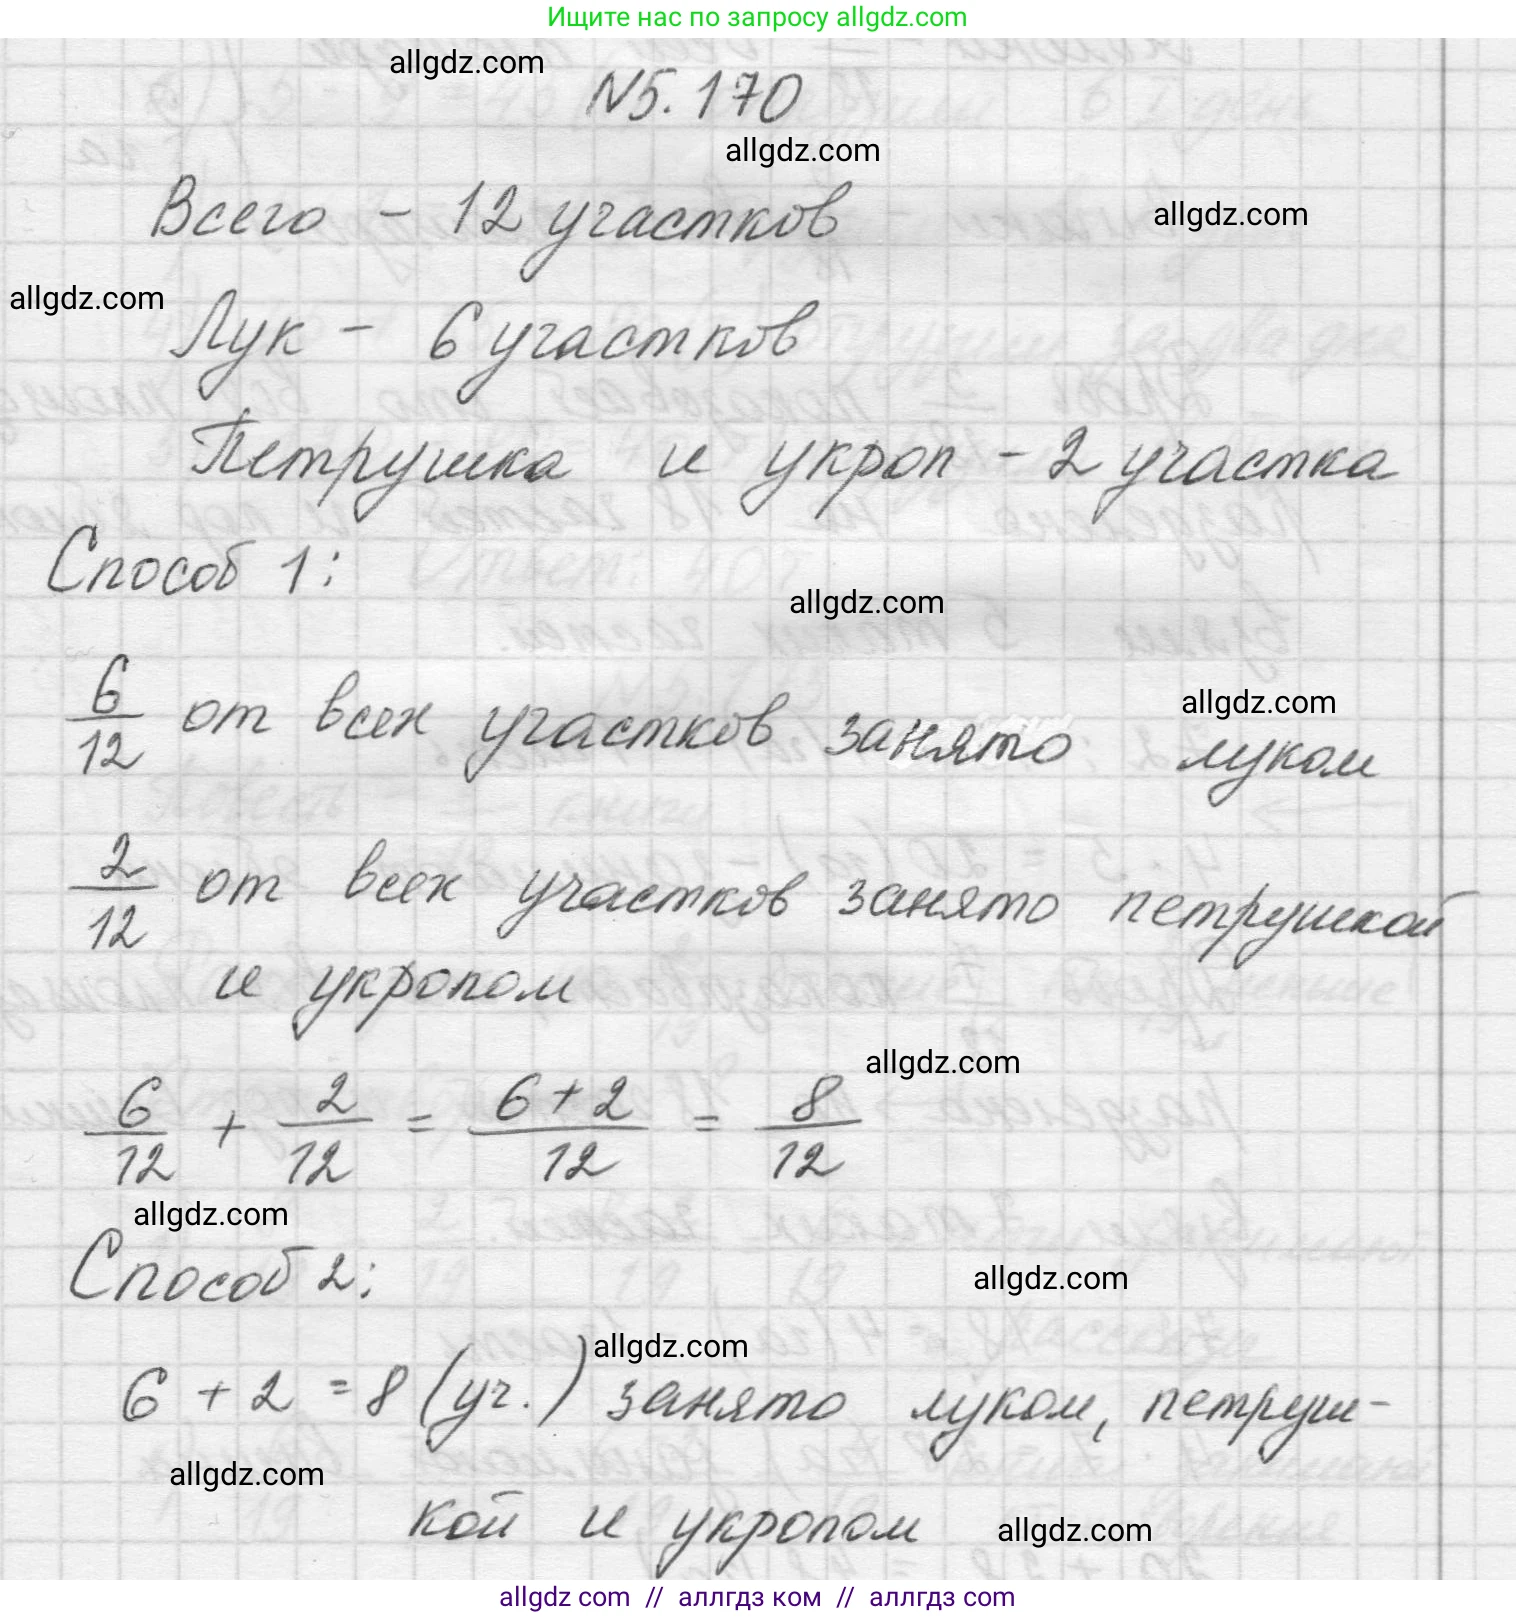 Ищите нас по запросу allgdz.com
allgdz.com
N5.170
allgdz.com
Всего - 12 участков
allgdz.com
allgdz.com
Лук - 6 участков
Петрушка и укроп - 2 участка
Способ 1:
allgdz.com
allgdz.com
6/12 от всех участков занято луком
2/12 от всех участков занято петрушкой
и укропом
allgdz.com
6/12 + 2/12 = (6+2)/12 = 8/12
allgdz.com
Способ 2:
allgdz.com
allgdz.com
6 + 2 = 8 (уч.) занято луком, петруш-
allgdz.com
кой и укропом
allgdz.com
allgdz.com // аллгдз ком // аллгдз.com